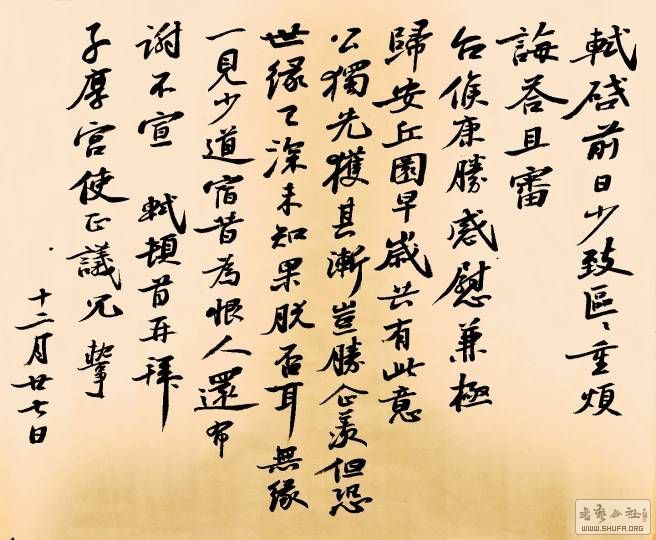 軾啓前日少致區〻重煩
誨答且審
台候康勝感慰兼極
歸安丘園早歲共有此意
公獨先獲其漸豈勝企羨但恐
世緣已深未知果脫否耳無緣
一見少道宿昔為恨人還布
謝不宣 軾頓首再拜
子厚宮使正議兄執事
十二月廿七日
書藝公社
WWW.SHUFA.ORG